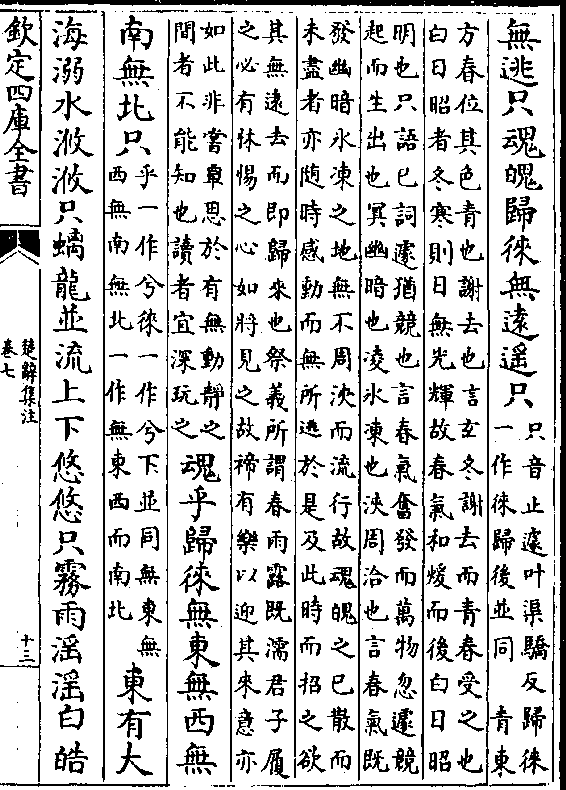 無逃只魂魄歸徠無遠遥只
只音止遽叶渠驕反歸徠
一作徠歸後並同　青東
方春位其色青也謝去也言玄冬謝去而青春受之也
白日昭者冬寒則日無光輝故春氣和煖而後白日昭
明也只語已詞遽猶競也言春氣奮發而萬物忽遽競
起而生出也冥幽暗也凌氷凍也浹周洽也言春氣既
發幽暗氷凍之地無不周浹而流行故魂魄之已散而
未盡者亦随時感動而無所逃於是及此時而招之欲
其無遠去而即歸来也祭義所謂春雨露既濡君子履
之必有怵惕之心如將見之故禘有樂以迎其来意亦
如此非嘗覃思於有無動靜之
間者不能知也讀者宜深玩之
魂乎歸徠無東無西無
南無北只
乎一作兮徠一作兮下並同無東無
西無南無北一作無東西而南北
東有大
海溺水浟浟只螭龍並流上下悠悠只霧雨滛滛白皓
欽定四庫全書
楚辭集注
卷七
十三